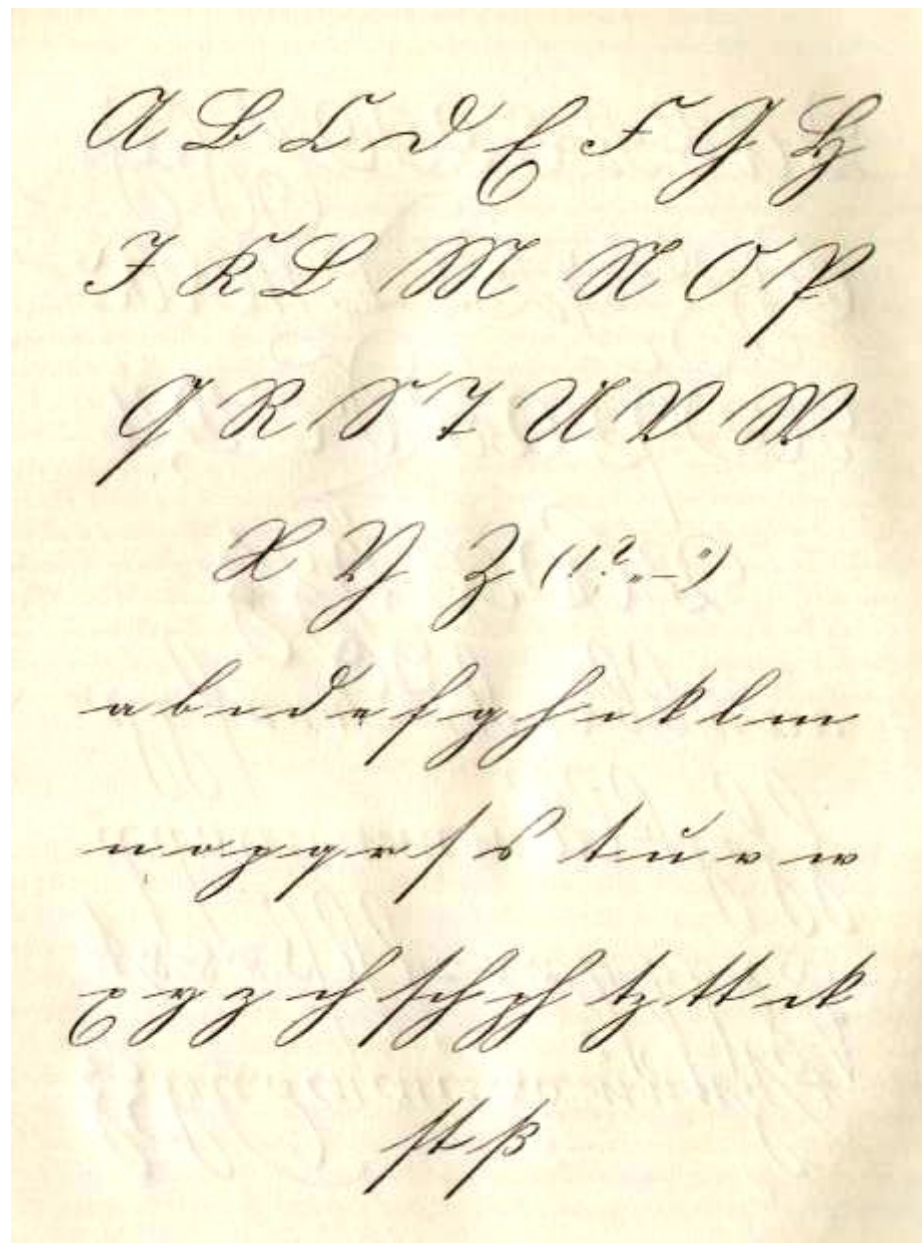 A B C D E F G H
I K L M N O P
Q R S T U V W
X Y Z (!?„-“)
a b c d e f g h i k l m
n o p q r ſ s t u v w
x y z ch ſch ph tz tt ck
ſt ß